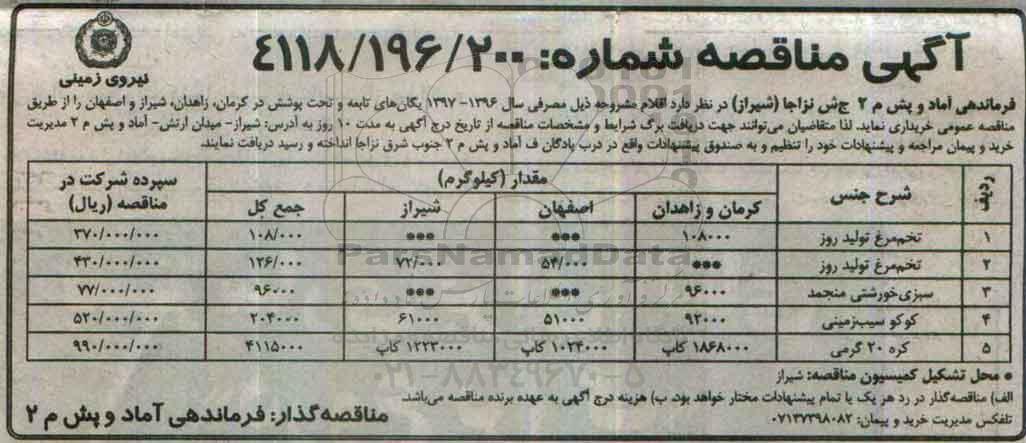 آگهی مناقصه شماره: ۴۱۱۸/۱۹۶/۲۰۰
نیروی زمینی
فرماندهی آماد و پش م ۲ ج‌ش نزاجا (شیراز) در نظر دارد اقلام مشروحه ذیل مصرفی سال ۱۳۹۶- ۱۳۹۷ یگان‌های تابعه و تحت پوشش در کرمان، زاهدان، شیراز و اصفهان را از طریق
مناقصه عمومی خریداری نماید. لذا متقاضیان می‌توانند جهت دریافت برگ شرایط و مشخصات مناقصه از تاریخ درج آگهی به مدت ۱۰ روز به آدرس: شیراز- میدان ارتش- آماد و پش م ۲ مدیریت
خرید و پیمان مراجعه و پیشنهادات خود را تنظیم و به صندوق پیشنهادات واقع در درب پادگان ف آماد و پش م ۲ جنوب شرق نزاجا انداخته و رسید دریافت نمایند.
ردیف شرح جنس مقدار (کیلوگرم) سپرده شرکت در مناقصه (ریال)
کرمان و زاهدان اصفهان شیراز جمع کل
۱ تخم‌مرغ تولید روز ۱۰۸۰۰۰ *** *** ۱۰۸/۰۰۰ ۳۷۰/۰۰۰/۰۰۰
۲ تخم‌مرغ تولید روز *** ۵۴/۰۰۰ ۷۲/۰۰۰ ۱۲۶/۰۰۰ ۴۳۰/۰۰۰/۰۰۰
۳ سبزی‌خورشتی منجمد ۹۶۰۰۰ *** *** ۹۶۰۰۰ ۷۷/۰۰۰/۰۰۰
۴ کوکو سیب‌زمینی ۹۲۰۰۰ ۵۱۰۰۰ ۶۱۰۰۰ ۲۰۴۰۰۰ ۵۲۰/۰۰۰/۰۰۰
۵ کره ۲۰ گرمی ۱۸۶۸۰۰۰ کاپ ۱۰۲۴۰۰۰ کاپ ۱۲۲۳۰۰۰ کاپ ۴۱۱۵۰۰۰ ۹۹۰/۰۰۰/۰۰۰
* محل تشکیل کمیسیون مناقصه: شیراز
الف) مناقصه‌گذار در رد هر یک یا تمام پیشنهادات مختار خواهد بود. ب) هزینه درج آگهی به عهده برنده مناقصه می‌باشد.
تلفکس مدیریت خرید و پیمان: ۰۷۱۳۷۳۹۸۰۸۲
مناقصه‌گذار: فرماندهی آماد و پش م ۲
ParsNamadData
۰۲۱-۸۸۳۴۹۶۷۰-۵